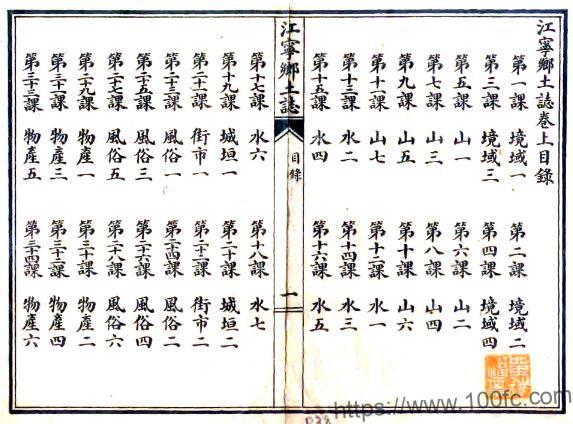 江寧鄉土誌卷上目錄
第一課 境域一 第二課 境域二
第三課 境域三 第四課 境域四
第五課 山一 第六課 山二
第七課 山三 第八課 山四
第九課 山五 第十課 山六
第十一課 山七 第十二課 水一
第十三課 水二 第十四課 水三
第十五課 水四 第十六課 水五
江寧鄉土誌 目錄 一
第十七課 水六 第十八課 水七
第十九課 城垣一 第二十課 城垣二
第二十一課 街市一 第二十二課 街市二
第二十三課 風俗一 第二十四課 風俗二
第二十五課 風俗三 第二十六課 風俗四
第二十七課 風俗五 第二十八課 風俗六
第二十九課 物產一 第三十課 物產二
第三十一課 物產三 第三十二課 物產四
第三十三課 物產五 第三十四課 物產六
https://www.100fc.com